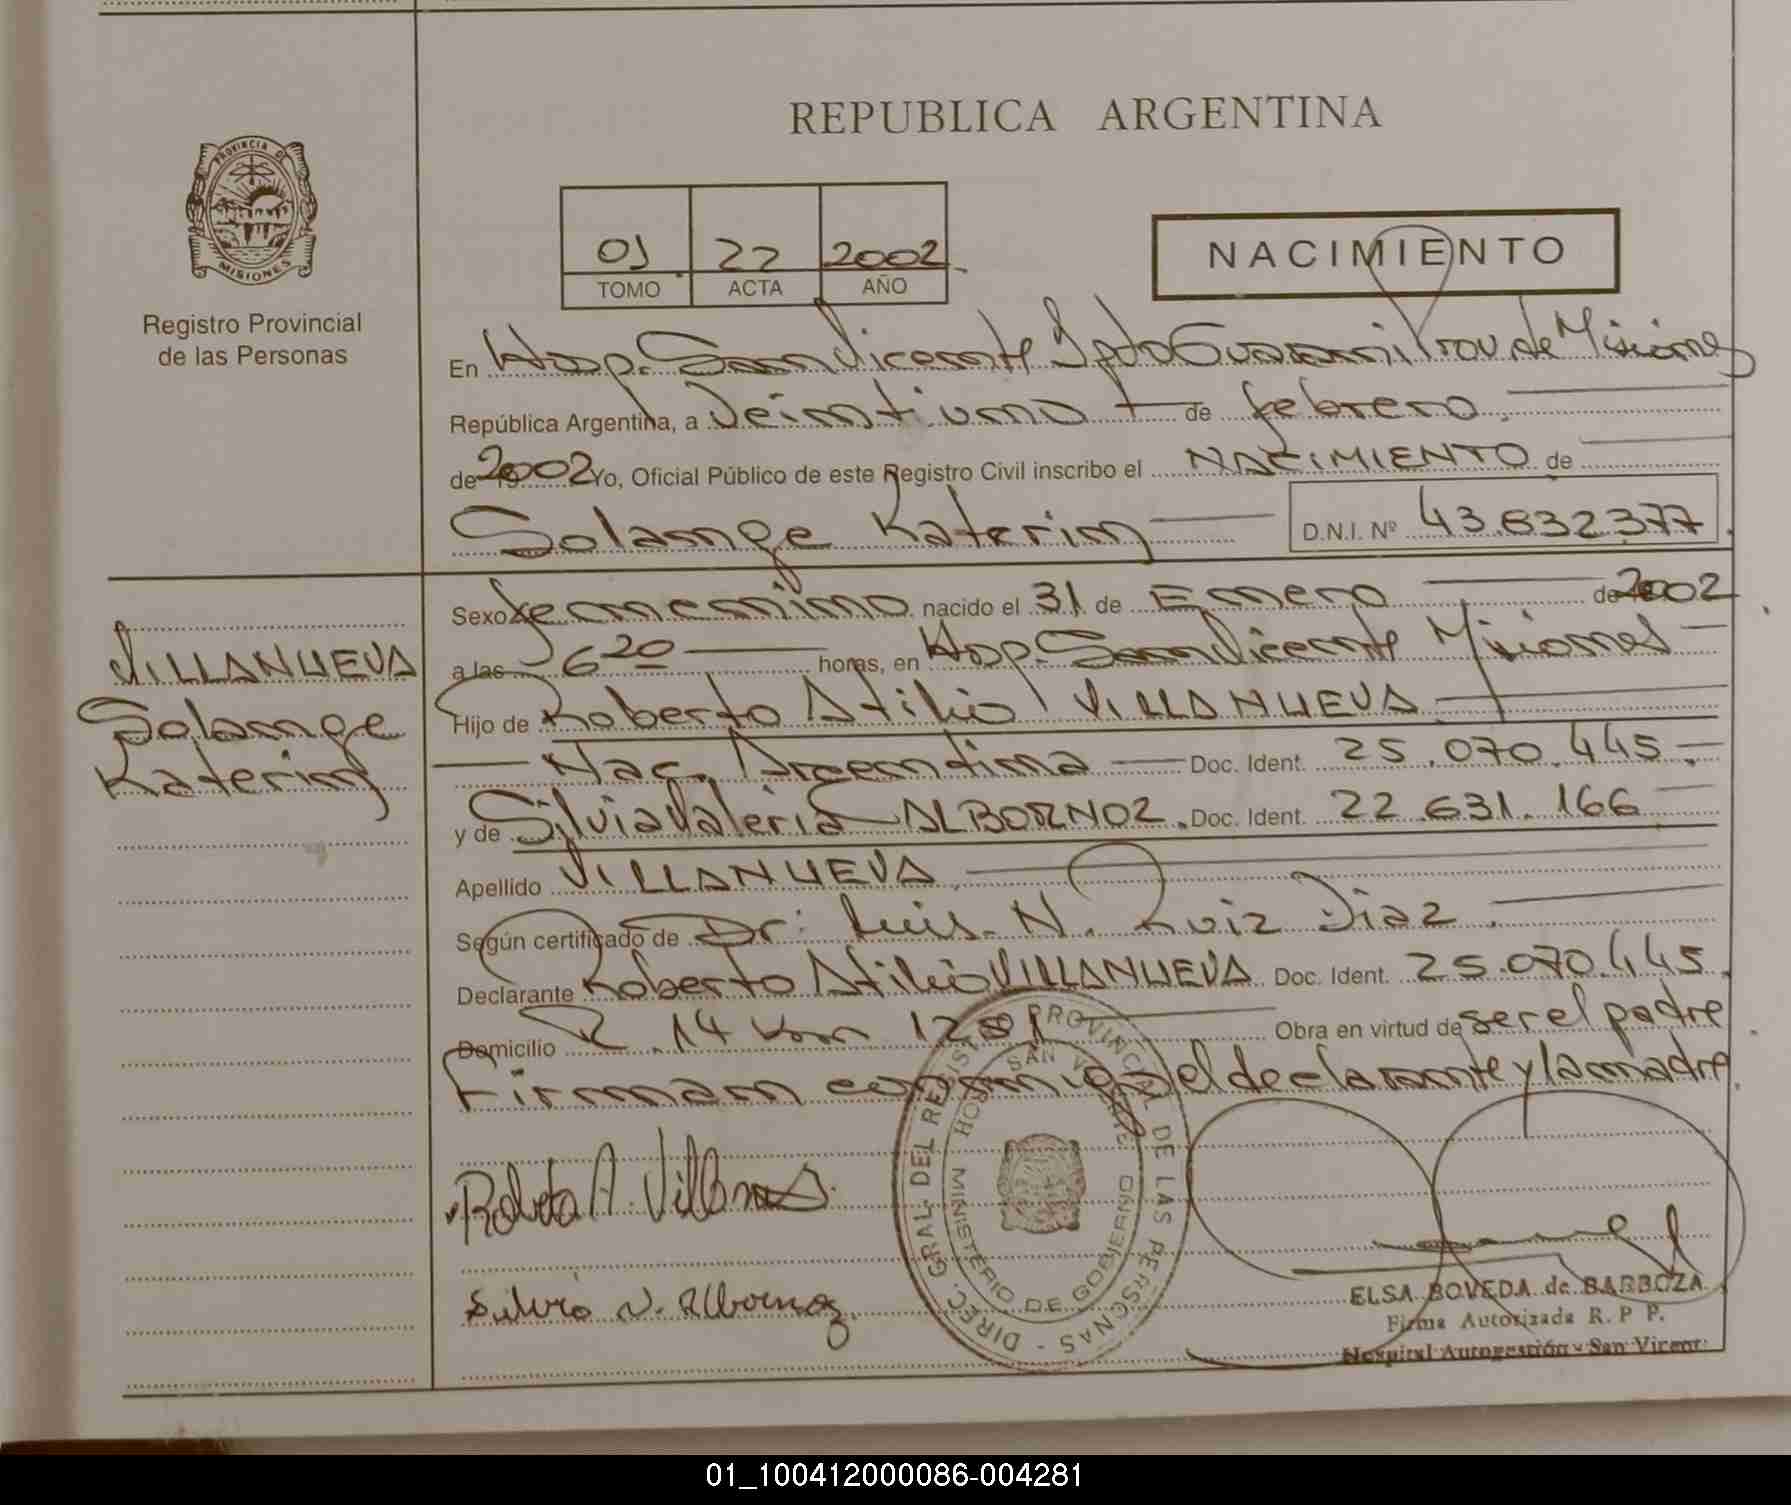 REPUBLICA ARGENTINA
PROVINCIA DE
MISIONES
Registro Provincial
de las Personas
01 22 2002
TOMO ACTA AÑO
NACIMIENTO
En Hosp. San Vicente Dpto Guarani Prov. de Misiones
República Argentina, a Veintiuno de febrero.
de 2002 Yo, Oficial Público de este Registro Civil inscribo el NACIMIENTO de
Solange Katerin D.N.I. Nº 43.832.377
VILLANUEVA
Solange
Katerin
Sexo femenino nacido el 31 de Enero de 2002
a las 6 20 horas, en Hosp. San Vicente Misiones
Hijo de Roberto Atilio VILLANUEVA
Nac. Argentina Doc. Ident. 25.070.445
y de Silvia Valeria ALBORNOZ. Doc. Ident. 22.631.166
Apellido VILLANUEVA
Según certificado de Dr: Luis N. Ruiz Diaz
Declarante Roberto Atilio VILLANUEVA Doc. Ident. 25.070.445
Domicilio R. 14 Km Obra en virtud de ser el padre
Firman conmigo el declarante y la madre
Roberto A. Villanueva
Silvia V. Albornoz
DIREC. GRAL. DEL REGISTRO PROVINCIAL DE LAS PERSONAS
HOSP. SAN VICENTE
MINISTERIO DE GOBIERNO
ELSA BOVEDA de BARBOZA
Firma Autorizada R. P. P.
Hospital Autogestión - San Vicente
01_100412000086-004281